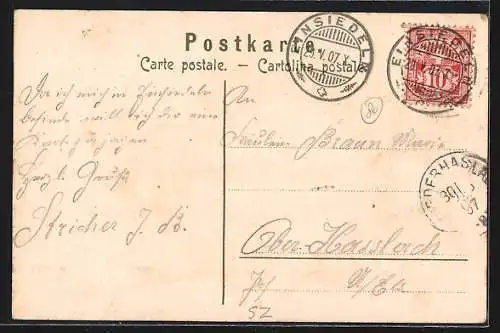 Postkarte.
Carte postale. — Cartolina postale.
EINSIEDELN
29.V.07.X
EINSIEDELN
10
NIEDERHASLACH
Da ich mich in Einsiedeln
befinde will ich dir eine
Karte
Herzl. Gruß
Stricher J. B.
An
Fräulein Braun Marie
Ober-Hasslach
SZ